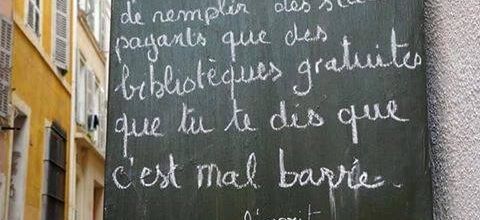 de remplir des sta
payants que des
bibliotèques gratuites
que tu te dis que
c'est mal barré.